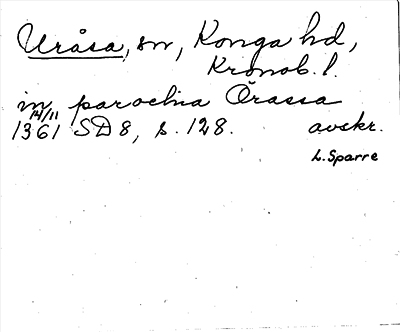 Uråsa, sn, Konga hd,
Kronob. l.
in parochia Ørassa
14/11
1361 SD 8, s. 128. avskr.
L. Sparre